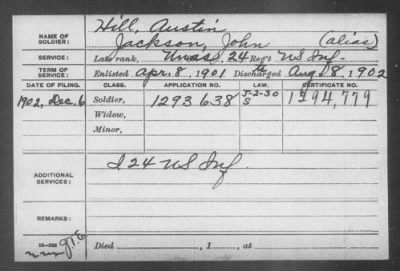 NAME OF SOLDIER: Hill, Austin
Jackson, John (alias)
SERVICE: Late rank, Unass, 24 Reg't US Inf.
TERM OF SERVICE: Enlisted Apr. 8, 1901 Discharged Aug 8, 1902
DATE OF FILING. CLASS. APPLICATION NO. LAW. CERTIFICATE NO.
1902, Dec. 6 Soldier, 1293638 5-2-30 S 1794,779
Widow,
Minor,
ADDITIONAL SERVICES: I 24 US Inf
REMARKS:
Died , 1 , at